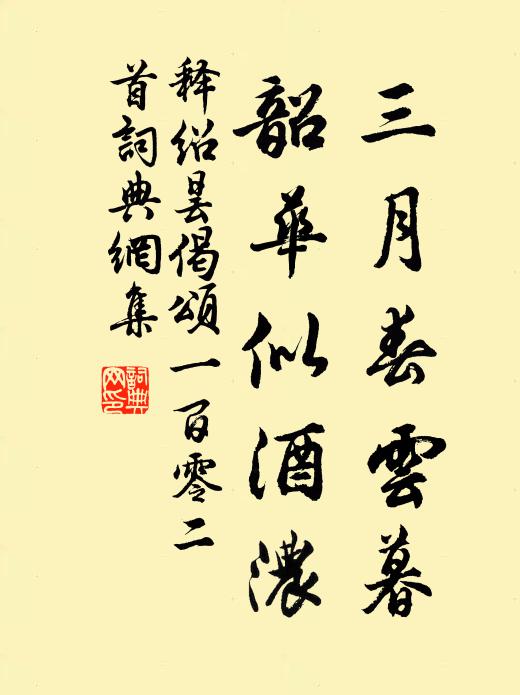 三月春雲暮
韶華似酒濃
释绍昙偈頌一百零二
首詞典網集
詞典網印